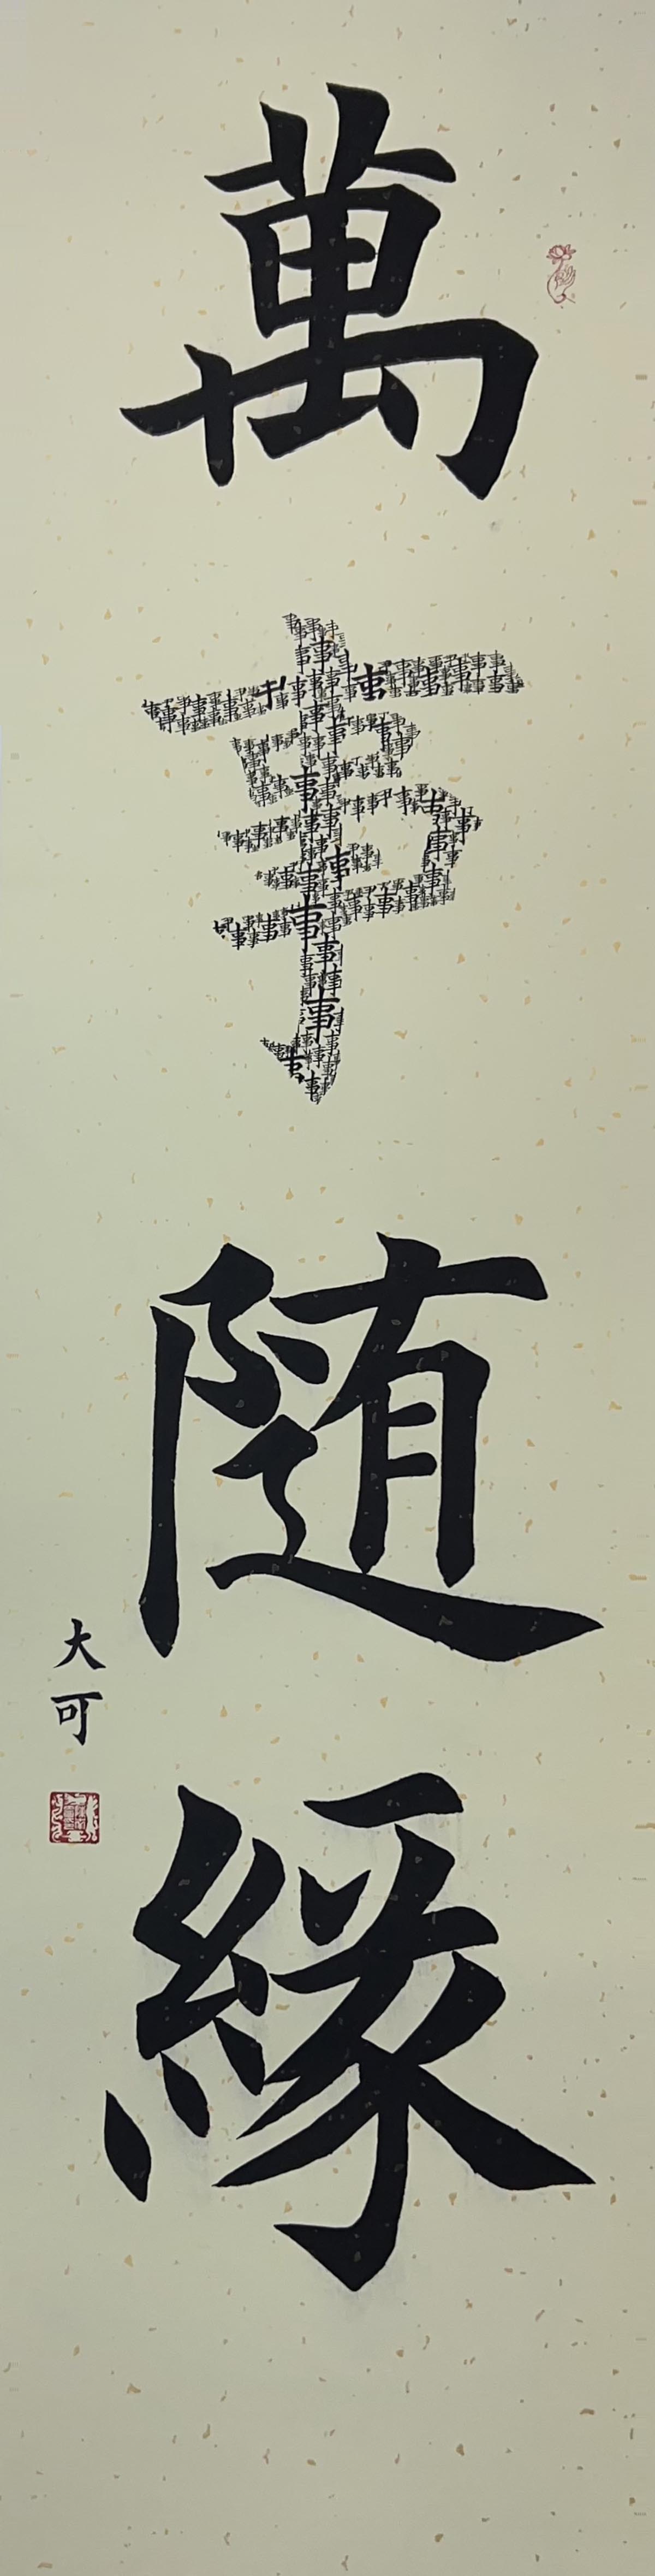 萬事随緣
大可